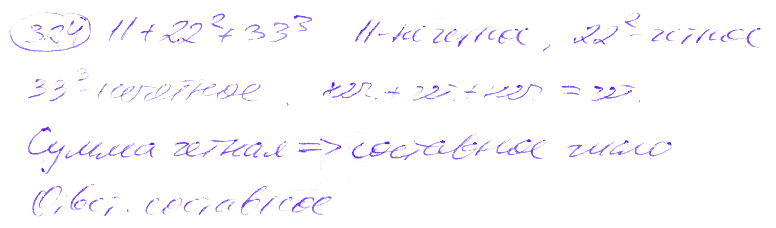 324 11 + 22² + 33³ 11 - нечетное, 22² - четное
33³ нечетное. неч. + чет. + неч. = чет.
Сумма четная => составное число
Ответ. составное